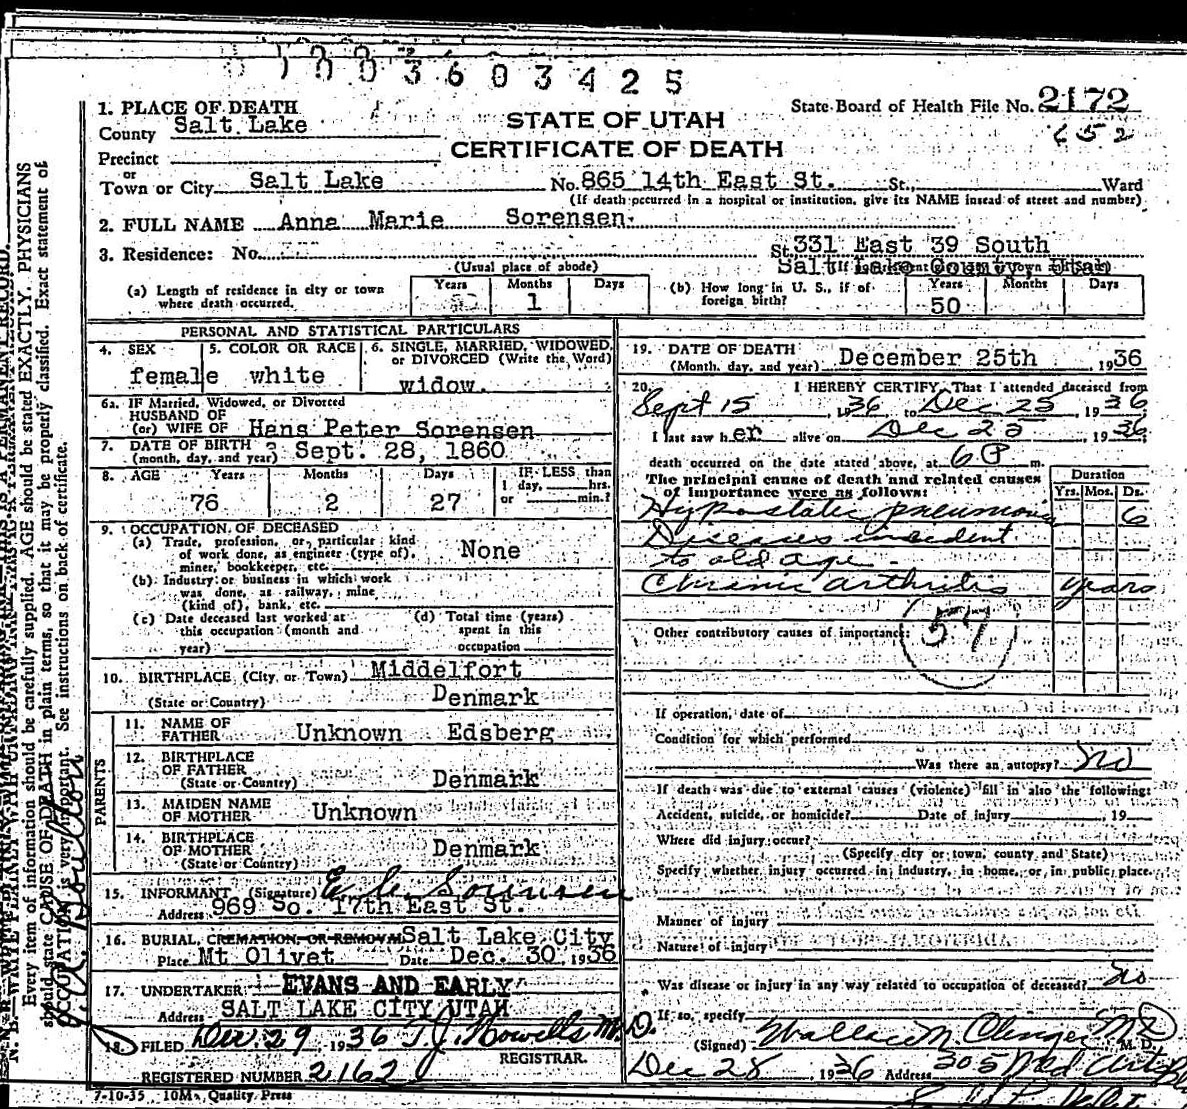 1003603425
1. PLACE OF DEATH
County Salt Lake
State Board of Health File No. 2172
652
STATE OF UTAH
CERTIFICATE OF DEATH
Precinct
or
Town or City Salt Lake No. 865 14th East St. St., Ward
(If death occurred in a hospital or institution, give its NAME instead of street and number)
2. FULL NAME Anna Marie Sorensen
3. Residence: No. St. 331 East 39 South
Salt Lake County, Utah
(Usual place of abode)
(a) Length of residence in city or town where death occurred. Years Months 1 Days
(b) How long in U. S., if of foreign birth? Years 50 Months Days
PERSONAL AND STATISTICAL PARTICULARS
4. SEX female
5. COLOR OR RACE white
6. SINGLE, MARRIED, WIDOWED, or DIVORCED (Write the Word) widow.
6a. IF Married, Widowed, or Divorced
HUSBAND OF
(or) WIFE OF Hans Peter Sorensen
7. DATE OF BIRTH
(month, day, and year) Sept. 28, 1860
8. AGE Years 76 Months 2 Days 27 IF LESS than 1 day, hrs. or min.?
9. OCCUPATION OF DECEASED
(a) Trade, profession, or particular kind
of work done, as engineer (type of),
miner, bookkeeper, etc. None
(b) Industry or business in which work
was done, as railway, mine
(kind of), bank, etc.
(c) Date deceased last worked at
this occupation (month and
year)
(d) Total time (years)
spent in this
occupation
10. BIRTHPLACE (City or Town) Middelfort
(State or Country) Denmark
PARENTS
11. NAME OF FATHER Unknown Edsberg
12. BIRTHPLACE OF FATHER
(State or Country) Denmark
13. MAIDEN NAME OF MOTHER Unknown
14. BIRTHPLACE OF MOTHER
(State or Country) Denmark
15. INFORMANT (Signature) Sorensen
Address 969 So. 17th East St.
16. BURIAL, CREMATION, OR REMOVAL Salt Lake City
Place Mt Olivet Date Dec. 30, 1936
17. UNDERTAKER EVANS AND EARLY
Address SALT LAKE CITY UTAH
18. FILED Dec. 29 1936 T. J. Howells M.D.
REGISTRAR.
REGISTERED NUMBER 2162
7-10-35 10M Quality Press
19. DATE OF DEATH
(Month, day, and year) December 25th, 1936
20. I HEREBY CERTIFY, That I attended deceased from
Sept 15, 1936 to Dec 25, 1936
I last saw her alive on Dec 25, 1936
death occurred on the date stated above, at 6 P m.
The principal cause of death and related causes
of importance were as follows:
Duration
Yrs. Mos. Ds.
Hypostatic pneumonia 6
Diseases incident
to old age
Chronic arthritis years
57
Other contributory causes of importance:
If operation, date of
Condition for which performed
Was there an autopsy? no
If death was due to external causes (violence) fill in also the following:
Accident, suicide, or homicide? Date of injury 19
Where did injury occur?
(Specify city or town, county and State)
Specify whether injury occurred in industry, in home, or in public place.
Manner of injury
Nature of injury
Was disease or injury in any way related to occupation of deceased? no
If so, specify
(Signed) Wallace M M D M. D.
Dec 28, 1936 Address 305 Med Arts
Every item of information should be carefully supplied. AGE should be stated EXACTLY. PHYSICIANS
should state CAUSE OF DEATH in plain terms, so that it may be properly classified. Exact statement of
OCCUPATION is very important. See instructions on back of certificate.